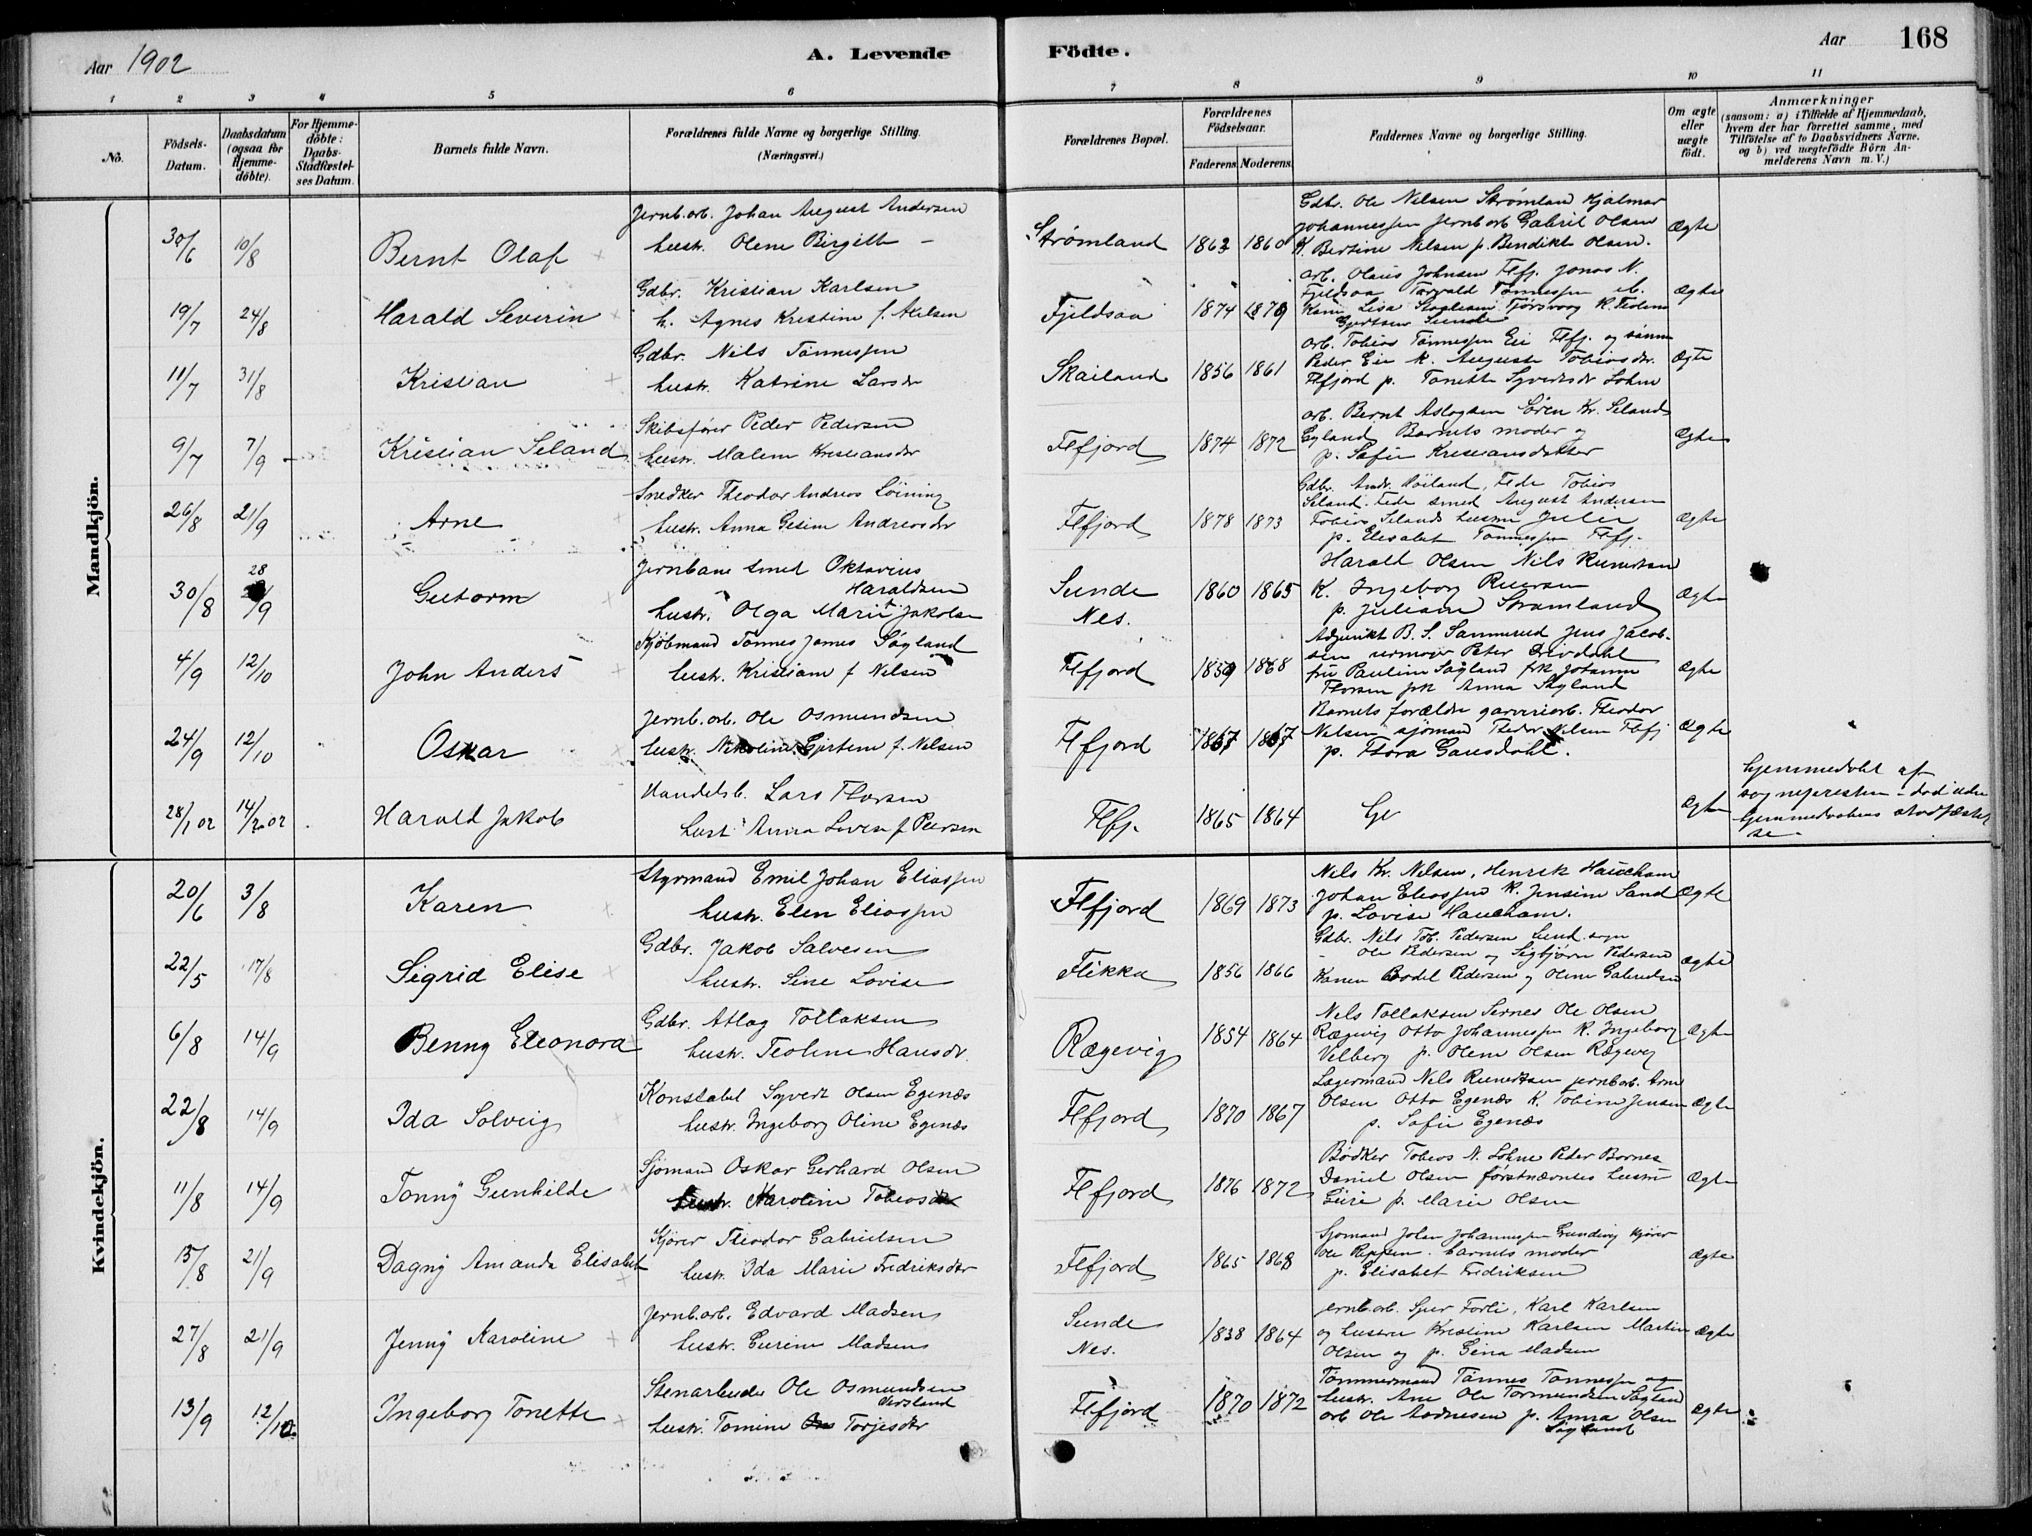 Aar 1902
A. Levende
Födte.
Aar
168
1 2 3 4 5 6 7 8 9 10 11
No.
Födsels-Datum.
Daabsdatum (ogsaa for Hjemme-döbte).
For Hjemme-döbte: Daabs-Stadfæstel-ses Datum.
Barnets fulde Navn.
Forældrenes fulde Navne og borgerlige Stilling.
(Næringsvei.)
Forældrenes Bopæl.
Forældrenes Födselsaar.
Faderens. Moderens.
Faddernes Navne og borgerlige Stilling.
Om ægte eller uægte födt.
Anmærkninger
(saasom: a) i Tilfælde af Hjemmedaab, hvem der har forrettet samme, med Tilföielse af to Daabsvidners Navne. og b) ved uægtefödte Börn An-melderens Navn m. V.)
Mandkjön.
30/6 10/8 Bernt Olaf
Jernb.arb. Johan August Andersen
hustr. Olene Birgitte
Strømland 1862 1860
Gdbr. Ole Nilsen Strømland Hjalmar
Johannessen jernb.arb Gabriel Olsen
K. Bertine Nilsen p. Bendikte Olsen.
Ægte
19/7 24/8 Harald Severin
Gdbr. Kristian Karlsen
h. Agnes Kristine f. Nilsen
Fjeldsaa 1874 1879
arb. Olaus Johnsen Flfj. Jonas N.
Fjeldsaa Torvald Tönnessen
Kone Lisa
Sunde
Ægte
11/7 31/8 Kristian
Gdbr. Nils Tönnessen
hustr. Katrine Larsdr
Skailand 1856 1861
arb. Tobias Tönnessen Eie Flfj. og sönn
Peder Eie K. Auguste Tobiasdr.
Flfjord p. Tonette Syvertsdr Lohne
Ægte
9/7 7/9 Kristian Seland
Skibsfører Peder Pedersen
hustr. Malene Kristiansdtr
Flfjord 1874 1872
arb. Bernt Aslagsen Sören Kr. Seland
Gyland Barnets moder og
p. Sofie Kristiansdatter
Ægte
26/8 21/9 Arne
Snedker Theodor Andreas Löining
hustr. Anna Gesine Andreasdtr
Flfjord 1878 1873
Gdbr. Andr. Föiland, Fede Tobias
Seland. Fede smed August Andersen
Tobias Selands hustru Julie
p. Elisabet Tönnessen Flfj.
Ægte
30/8 28/9 Gutorm
Jernbane smed Oktavius
Haraldsen
hustr. Olga Marie Jakobsen
Sunde
Nes. 1860 1865
Harald Olsen Nils Reinertsen
K. Ingeborg
p. Juliane Strømland
Ægte
4/9 12/10 John Anders
Kjöbmand Tönnes James Sögland
hustr. Kristiane f Nilsen
Flfjord 1859 1868
Adjunkt B. S. Sannerud Jens Jacob-
sen urmager Peter Drivdahl
fru Pauline Sögland frk Johanne
frk Anna Sögland
Ægte
24/9 12/10 Oskar
Jernb.arb. Ole Osmundsen
hustr. Nikoline Gjertine f. Nilsen
Flfjord 1867 1867
Barnets forældre garveriarb. Theodor
Nilsen sjömand Peder Nilsen Flfj
p. Thora Gausdahl.
Ægte
28/1 02 14/2 02 Harald Jakob
Handelsb. Lars Thorsen
hust Anna Lovise f Peersen
Flfj. 1865 1864
Ægte
hjemmedobt af
sognepresten - död uden
hjemmedaabens stadfæstel
se
Kvindekjön.
20/6 3/8 Karen
Styrmand Emil Johan Eliassen
hustr. Elen Eliassen
Flfjord 1869 1873
Nils Kr. Nilsen, Henrik Haucham
Johan Eliassen K. Jensine Sand
p. Lovise Haucham.
Ægte
22/5 17/8 Sigrid Elise
Gdbr. Jakob Salvesen
hustr. Sine Lovise
Flikka 1856 1866
Gdbr. Nils Tob. Pedersen Lund sogn
Ole Pedersen og Sigbjörn Pedersen
Konen Bodel Pedersen og Olene Gabrielsen
Ægte
6/8 14/9 Benny Eleonora
Gdbr. Atlag Tollaksen
hustr. Teoline Hansdr.
Rægevig 1854 1864
Nils Tollaksen Sernes Ole Olsen
Rægevig Otto Johannessen K. Ingeborg
Velberg p. Olene Olsen Rægevig
Ægte
22/8 14/9 Ida Solveig
Konstabel Syvert Olsen Egenæs
hustr. Ingeborg Oline Egenæs
Flfjord 1870 1867
Lagermand Nils Reinertsen jernb.arb. Arne
Olsen Otto Egenæs K. Tobine Jensen
p. Sofie Egenæs
Ægte
11/8 14/9 Tonny Gunhilde
Sjömand Oskar Gerhard Olsen
hustr. Karoline Tobiasdtr
Flfjord 1876 1872
Bödker Tobias N. Lohne Peder Bornes
Daniel Olsen förstnævntes hustru
Guri p. Marie Olsen
Ægte
15/8 21/9 Dagny Amanda Elisabet
Kjører Theodor Gabrielsen
hustr. Ida Marie Fredriksdtr
Flfjord 1865 1868
Sjömand Johan Johannessen Grundvig kjører
Ole Reppen. barnets moder
p. Elisabet Fredriksen
Ægte
27/8 21/9 Jenny Karoline
Jernb.arb. Edvard Madsen
hustr. Gurine Madsen
Sunde
Nes. 1838 1864
ernb.arb. Sjur Forli, Karl Karlsen
og hustru Kristine Karlsen Martin
Olsen og p. Gina Madsen
Ægte
13/9 12/10 Ingeborg Tonette
Stenarbeider Ole Osmundsen
Aarsland
hustr. Tomine Torjesdtr
Flfjord 1870 1872
Tömmermand Tönnes Tönnessen og
hustr. Ane Ole Tormundsen Sögland
arb Ole Aadnesen p. Anna Olsen
Sögland
Ægte